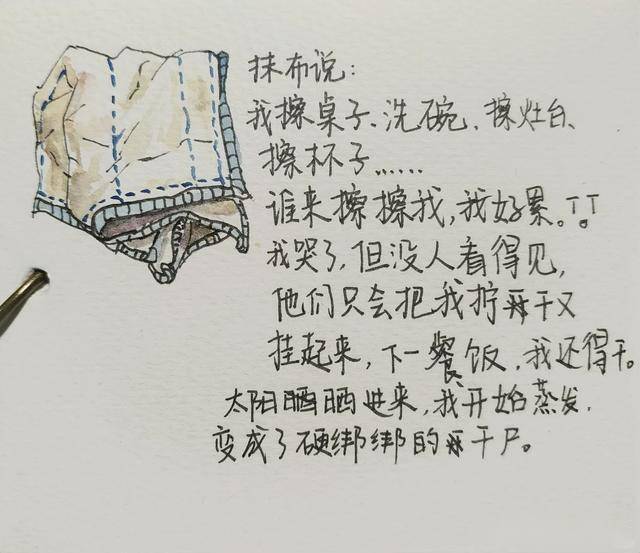 抹布说：
我擦桌子、洗碗、擦灶台、
擦杯子……
谁来擦擦我，我好累。T。T
我哭了，但没人看得见，
他们只会把我拧干又
挂起来，下一餐饭，我还得干。
太阳晒晒进来，我开始蒸发，
变成了硬绑绑的干尸。